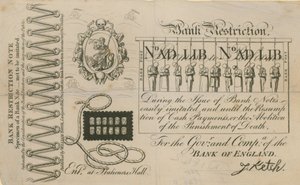 BANK RESTRICTION NOTE
Specimen of a Bank Note — not to be imitated.
Bank Restriction.
No. AD LIB. No. AD LIB.
During the Issue of Bank Notes
easily imitated, and until the Resump-
tion of Cash Payments, or the Abolition
of the Punishment of Death,
For the Gov: and Comp.a of the
BANK OF ENGLAND.
J. Ketch.